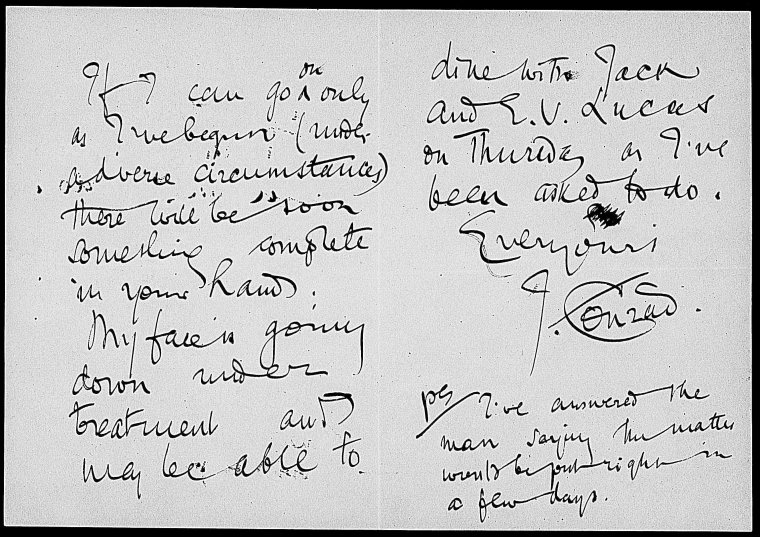 If I can go on only
as I've begun (under
adverse circumstances)
there will be soon
something complete
in your hands.
My face is going
down under
treatment and
may be able to
dine with Jack
and E. V. Lucas
on Thursday as I've
been asked to do.
Ever yours
J. Conrad.
PS I've answered the
man saying the matter
would be put right in
a few days.